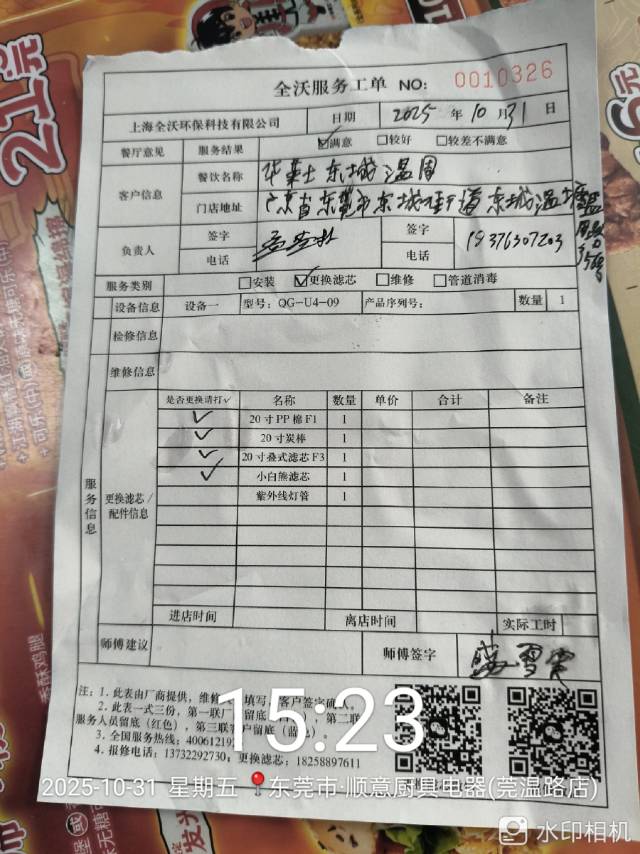 21元
全沃服务工单 NO: 0010326
上海全沃环保科技有限公司 日期 2025 年 10 月 31 日
餐厅意见 服务结果 ☑满意 □较好 □较差不满意
客户信息 餐饮名称 华莱士 东城温周
门店地址 广东省东莞市东城街道东城温塘
负责人 签字 签字
电话 电话
服务类别 □安装 ☑更换滤芯 □维修 □管道消毒
设备信息 设备一 型号: QG-U4-09 产品序列号: 数量 1
检修信息
维修信息
服务信息
更换滤芯/配件信息
是否更换请打√ 名称 数量 单价 合计 备注
✓ 20寸PP棉F1 1
✓ 20寸炭棒 1
✓ 20寸叠式滤芯F3 1
✓ 小白熊滤芯 1
紫外线灯管 1
进店时间 离店时间 实际工时
师傅建议 师傅签字
注: 1. 此表由厂商提供, 维修 填写, 客户签字确认。
2. 此表一式三份, 第一联厂 留底 第二联
服务人员留底 (红色), 第三联客户留底 (蓝色)。
3. 全国服务热线: 400612192
4. 报修电话: 13732292730; 更换滤芯: 18258897611
15:23
2025-10-31 星期五 东莞市·顺意厨具电器(莞温路店)
水印相机
香酥鸡腿